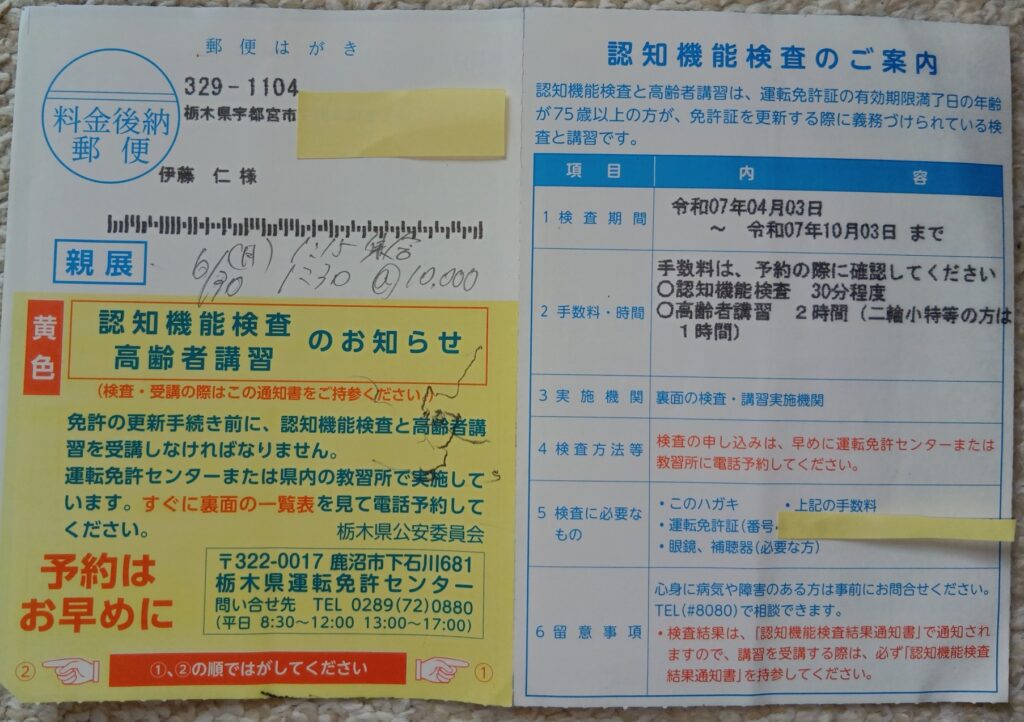 郵便はがき
料金後納
郵便
329-1104
栃木県宇都宮市
伊藤 仁 様
親展
6/30 (月) 1:15
1:30 @10.000
黄色
認知機能検査
高齢者講習
のお知らせ
(検査・受講の際はこの通知書をご持参ください。)
免許の更新手続き前に、認知機能検査と高齢者講
習を受講しなければなりません。
運転免許センターまたは県内の教習所で実施して
います。すぐに裏面の一覧表を見て電話予約して
ください。 栃木県公安委員会
予約は
お早めに
〒322-0017 鹿沼市下石川681
栃木県運転免許センター
問い合せ先 TEL 0289(72)0880
(平日 8:30～12:00 13:00～17:00)
② ①、②の順ではがしてください ①
認知機能検査のご案内
認知機能検査と高齢者講習は、運転免許証の有効期限満了日の年齢
が75歳以上の方が、免許証を更新する際に義務づけられている検
査と講習です。
項目 内容
1 検査期間 令和07年04月03日
～ 令和07年10月03日 まで
2 手数料・時間 手数料は、予約の際に確認してください
○認知機能検査 30分程度
○高齢者講習 2時間(二輪小特等の方は
1時間)
3 実施機関 裏面の検査・講習実施機関
4 検査方法等 検査の申し込みは、早めに運転免許センターまたは
教習所に電話予約してください。
5 検査に必要な
もの
・このハガキ ・上記の手数料
・運転免許証(番号
・眼鏡、補聴器(必要な方)
6 留意事項
心身に病気や障害のある方は事前にお問合せください。
TEL(#8080)で相談できます。
・検査結果は、「認知機能検査結果通知書」で通知され
ますので、講習を受講する際は、必ず「認知機能検査
結果通知書」を持参してください。